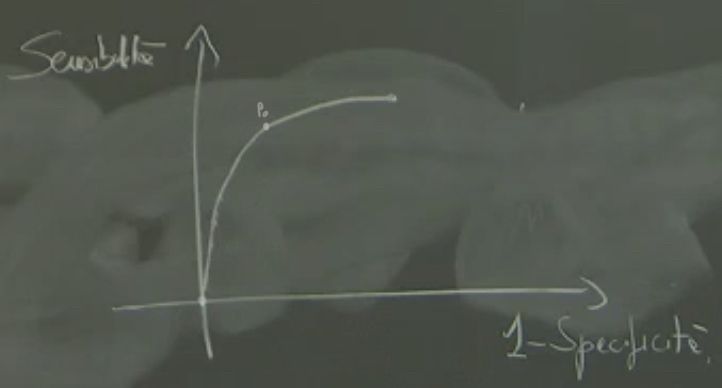 Sensibilité
P₀
1-Specificité